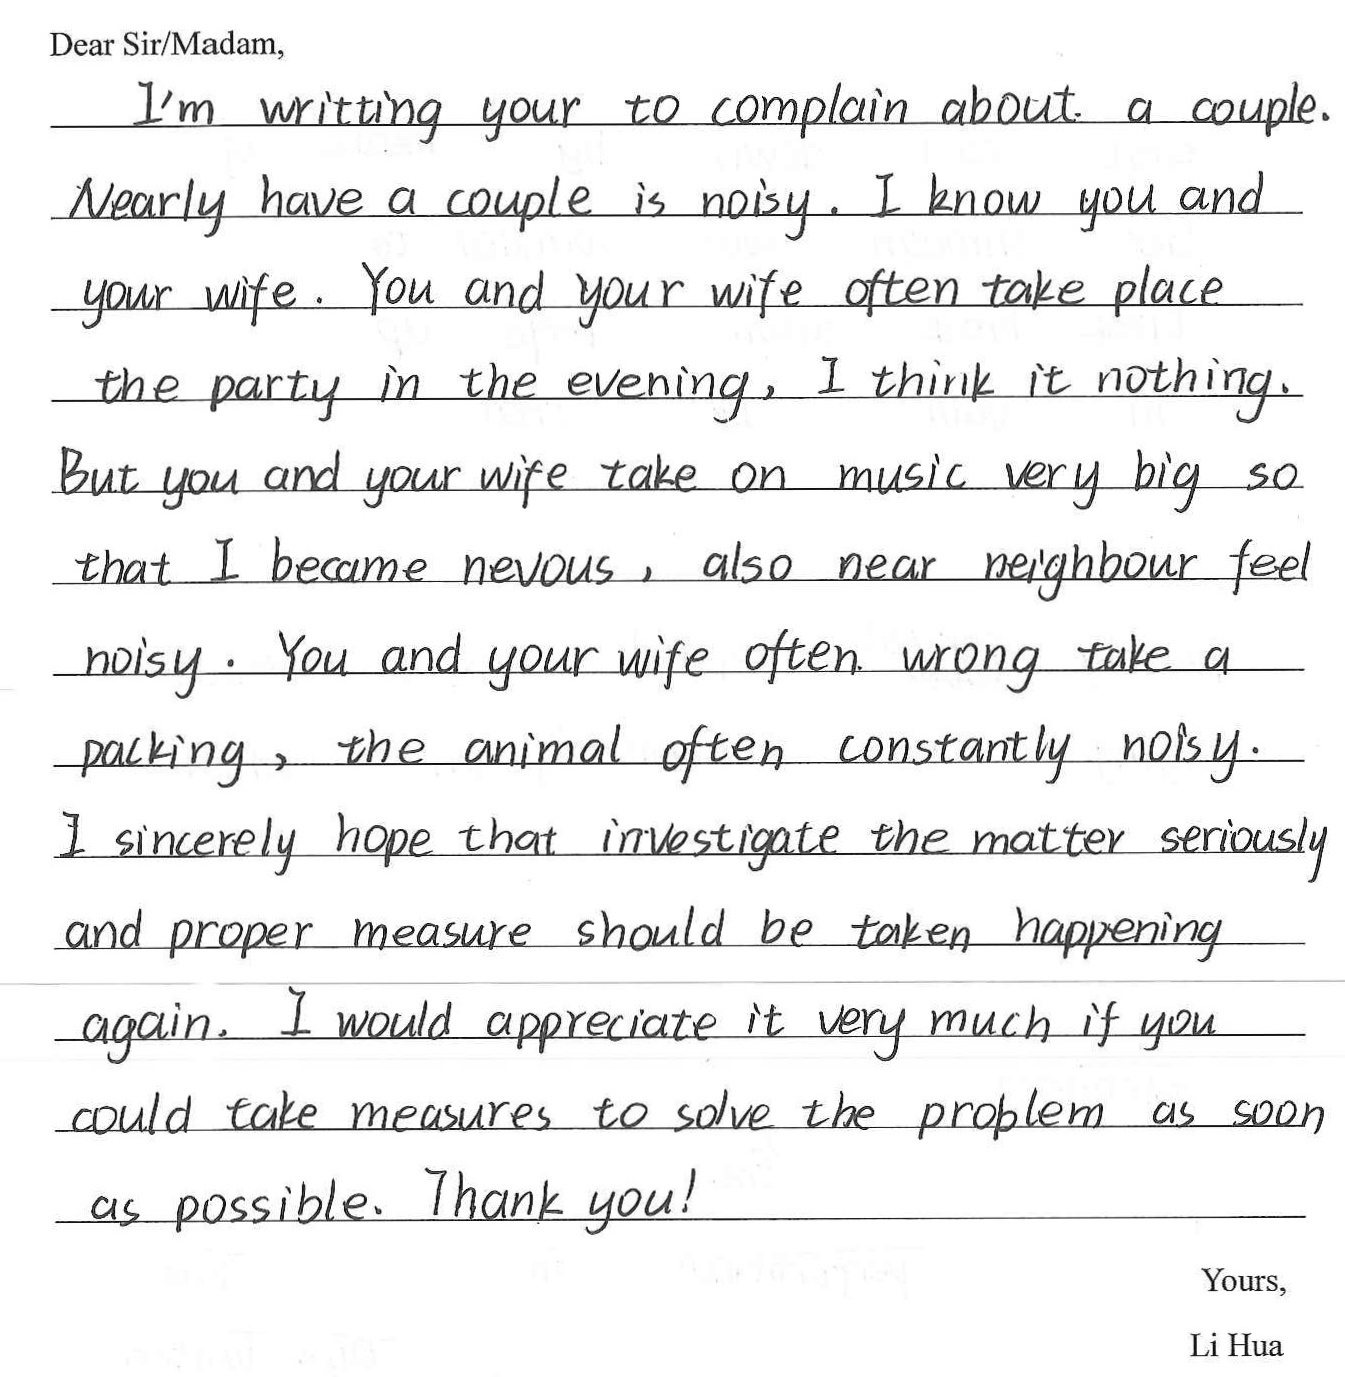 Dear Sir/Madam,
I'm writting your to complain about a couple.
Nearly have a couple is noisy. I know you and
your wife. You and your wife often take place
the party in the evening, I think it nothing.
But you and your wife take on music very big so
that I became nevous, also near neighbour feel
noisy. You and your wife often wrong take a
packing, the animal often constantly noisy.
I sincerely hope that investigate the matter seriously
and proper measure should be taken happening
again. I would appreciate it very much if you
could take measures to solve the problem as soon
as possible. Thank you!
Yours,
Li Hua